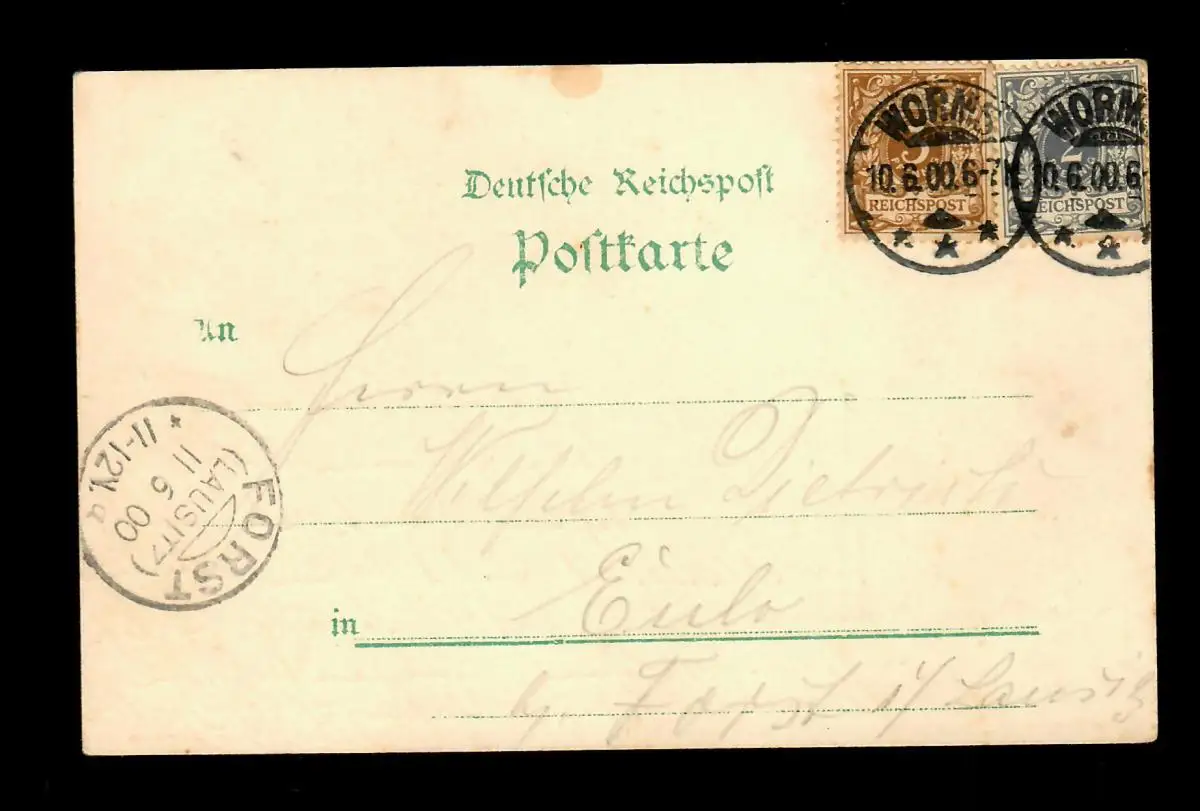 Deutsche Reichspost
Postkarte
WORMS
10.6.00.6-7N
3
REICHSPOST
WORM
10.6.00.6-
2
REICHSPOST
An
Herrn
Wilhelm Dietrich
in Eulo
b/ Forst i/ Lausitz
FORST
(LAUSITZ)
11 6 00
11-12V.
a